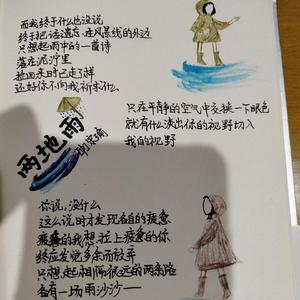 而我终于什么也没说
终于把话遗忘在风景线的外边
只想起雨中的一首诗
落在泥泞里
拾回来时已走了样
还好你不向我祈求什么
只在平静的空气中交换一下眼色
就有什么溢出你的视野切入
我的视野
两地雨
你说，没什么
这么说时才发现各自的疲惫
疲惫的我想拉上疲惫的你
终应发觉多余而放弃
只想起相隔很远的两条路
各有一场雨沙沙——